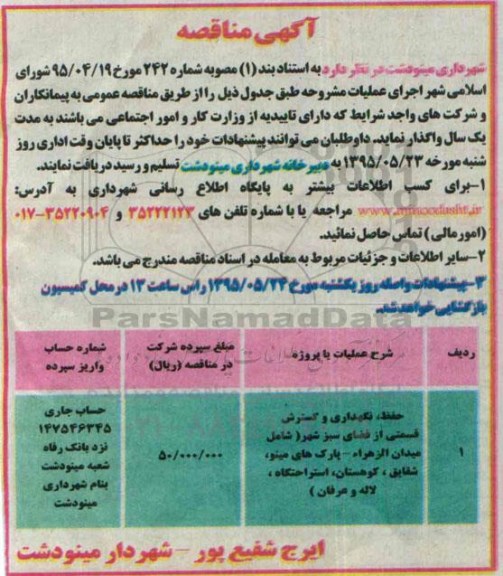 آگهی مناقصه
شهرداری مینودشت در نظر دارد به استناد بند (۱) مصوبه شماره ۲۴۲ مورخ ۹۵/۰۴/۱۹ شورای
اسلامی شهر اجرای عملیات مشروحه طبق جدول ذیل را از طریق مناقصه عمومی به پیمانکاران
و شرکت های واجد شرایط که دارای تاییدیه از وزارت کار و امور اجتماعی می باشند به مدت
یک سال واگذار نماید. داوطلبان می توانند پیشنهادات خود را حداکثر تا پایان وقت اداری روز
شنبه مورخه ۱۳۹۵/۰۵/۲۳ به دبیر خانه شهرداری مینودشت تسلیم و رسید دریافت نمایند.
۱-برای کسب اطلاعات بیشتر به پایگاه اطلاع رسانی شهرداری به آدرس:
مراجعه یا با شماره تلفن های ۳۵۲۲۲۱۲۳ و ۳۵۲۲۰۹۰۴-۰۱۷
(امور مالی) تماس حاصل نمائید.
۲-سایر اطلاعات و جزئیات مربوط به معامله در اسناد مناقصه مندرج می باشد.
۳-پیشنهادات واصله روز یکشنبه مورخ ۱۳۹۵/۰۵/۲۴ راس ساعت ۱۳ در محل کمیسیون
بازگشایی خواهد شد.
ParsNamadData
ردیف
شرح عملیات یا پروژه
مبلغ سپرده شرکت
در مناقصه (ریال)
شماره حساب
واریز سپرده
۱
حفظ، نگهداری و گسترش
قسمتی از فضای سبز شهر( شامل
میدان الزهراء – پارک های مینو،
شقایق ، کوهستان، استراحتگاه ،
لاله و عرفان )
۵۰/۰۰۰/۰۰۰
حساب جاری
۱۴۷۵۴۶۳۴۵
نزد بانک رفاه
شعبه مینودشت
بنام شهرداری
مینودشت
ایرج شفیع پور – شهردار مینودشت